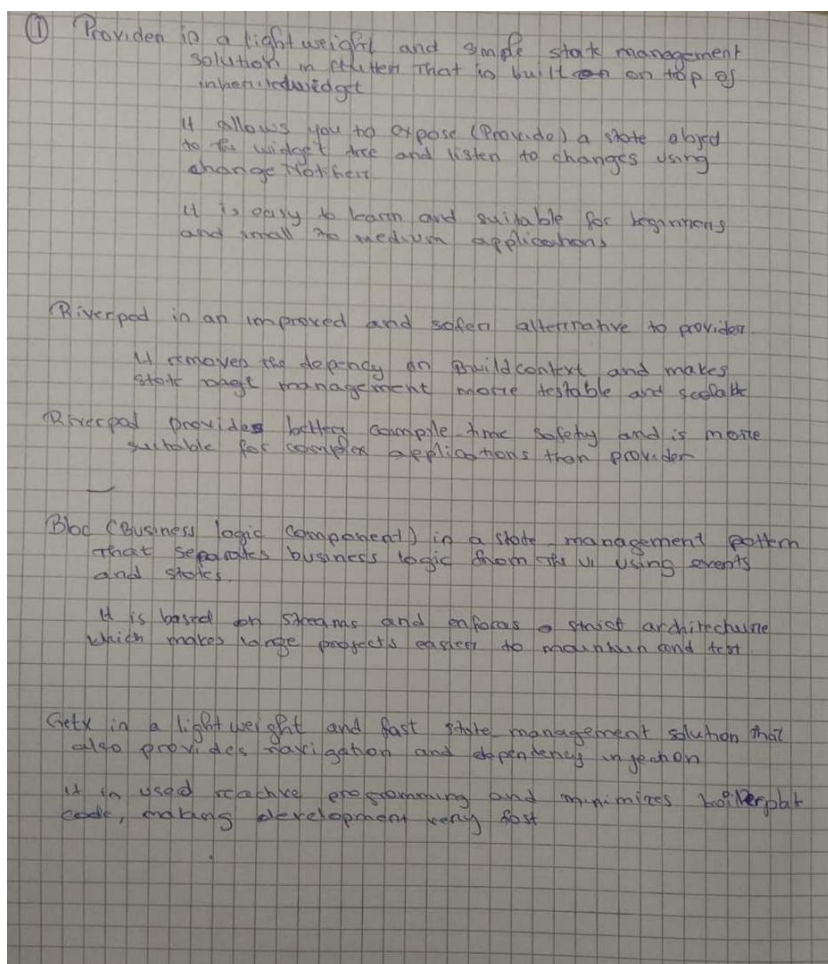 ① Provider is a lightweight and simple state management
solution in flutter that is built on on top of
inheritedwidget
It allows you to expose (Provide) a state object
to the widget tree and listen to changes using
change Notifier
It is easy to learn and suitable for beginners
and small to medium applications
Riverpod is an improved and safer alternative to provider.
It removes the depency on Buildcontext and makes
state management more testable and scalable
Riverpod provides better compile-time safety and is more
suitable for complex applications than provider
Bloc (Business logic component) is a state management pattern
that separates business logic from the UI using events
and states.
It is based on streams and enforces a strict architechure
which makes large projects easier to maintain and test
GetX is a lightweight and fast state management solution that
also provides navigation and dependency injection
it is used reactive programming and minimizes boilerplat
code, making development very fast